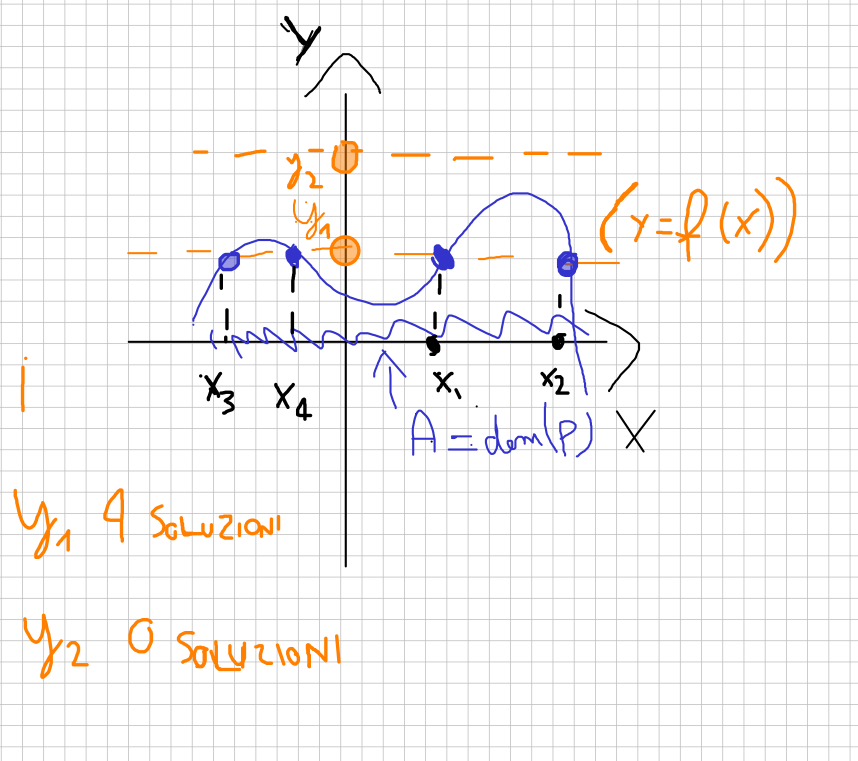 Y
y₂
y₁
(y=f(x))
x₃ x₄ x₁ x₂
A = dom(f) X
i
y₁ 4 SOLUZIONI
y₂ 0 SOLUZIONI